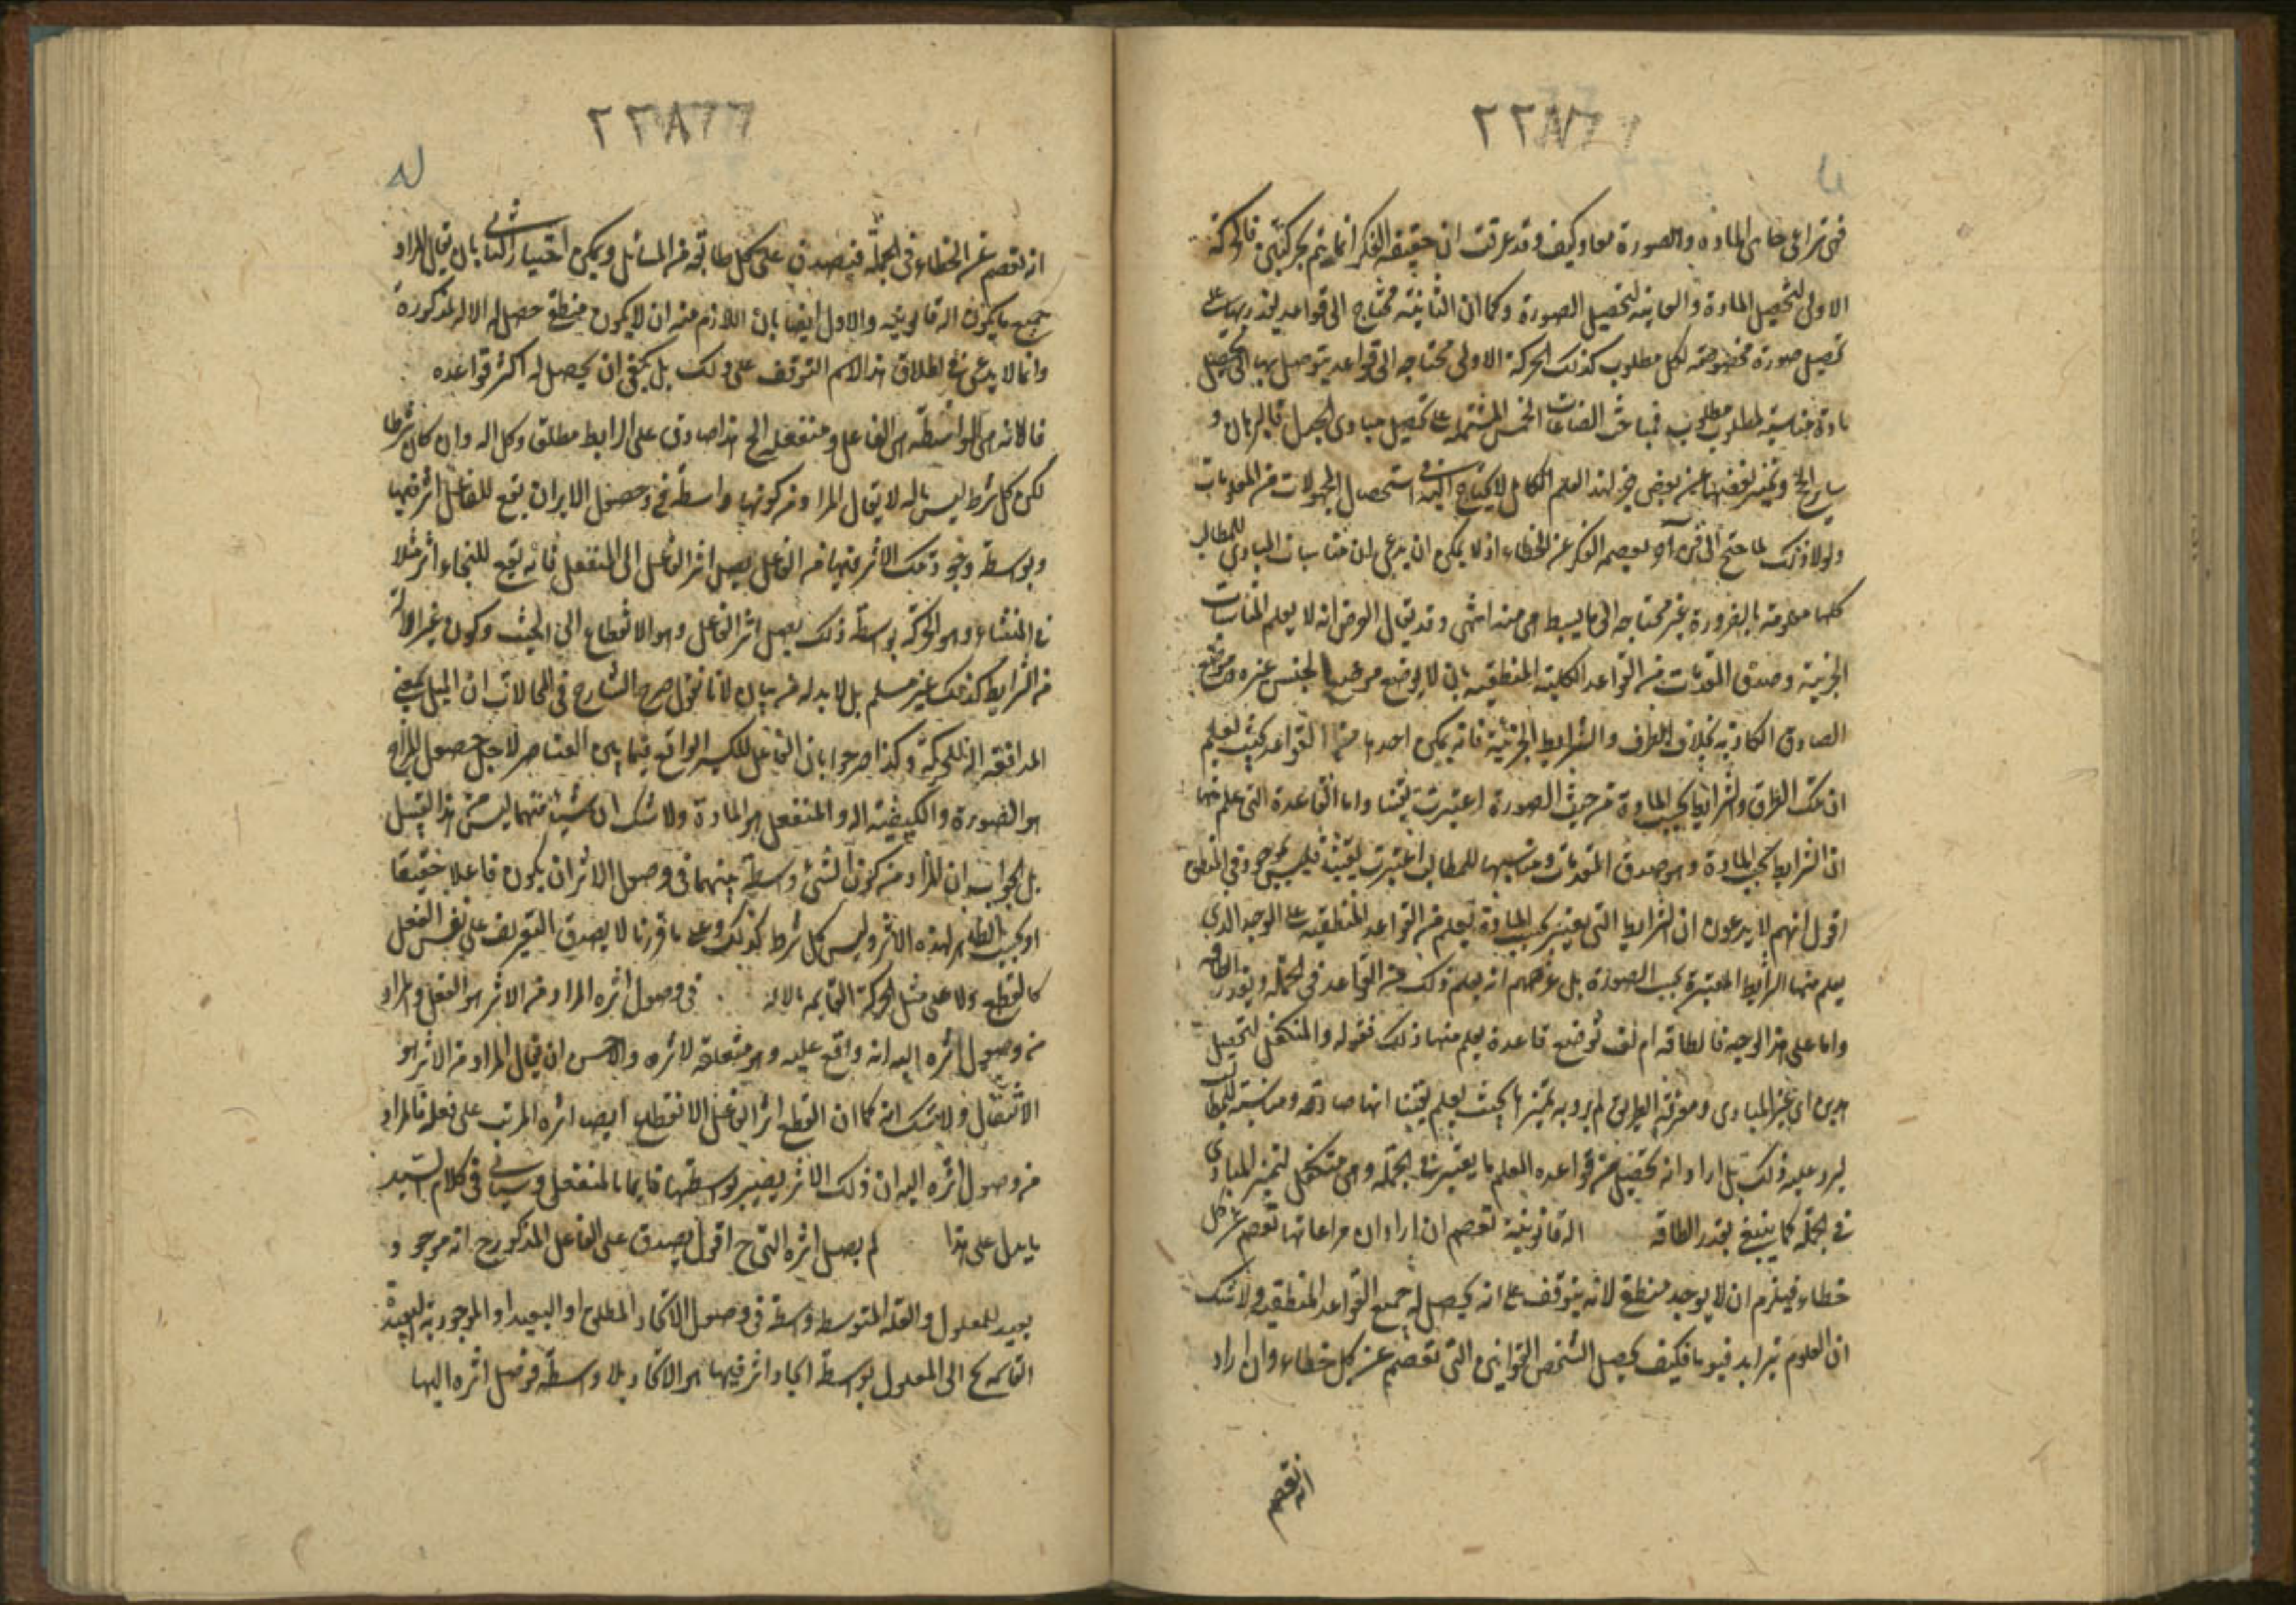 فهي تراعى جانبى المادة والصورة معا وكيف وقد عرفت ان حقيقة الفكر انما يتم بحركتين فالحركة
الاولى لتحصيل المادة والثانية لتحصيل الصورة وكما ان الثانية محتاج الى قواعد يقتدر بها على
تحصيل صورة مخصوصة لكل مطلوب كذلك الحركة الاولى محتاجه الى قواعد يتوصل بها الى تحصيل
مادة مناسبة لمطلوب مطلوب فمباحث الصناعات الخمس المشتمله على تحصيل مبادى الجدل والبرهان و
وتميز بعضها عن بعض جزء لهذا العلم الكامل لا يحتاج اليه فى استحصال المجهولات من المعلومات
ولولا ذلك لما احتج الى يعصم الفكر عن الخطاء اذ لا يمكن ان يدعى ان مناسبات المبادى للمطالب
كلها معلومة بالضرورة غير محتاجه الى ما يسبط هى منه انتهى وقد يقال الغرض انه لا يعلم المناسبات
الجزئية وصدق المقدمات من القواعد الكلية المنطقيه بان لا يوضع موضع الجنس غيره وموضع
الصادق الكاذبه بخلاف الطرف والشرايط الجزئية فانه يمكن اخذها من القواعد بحيث يعلم
ان تلك الطرق والشرايط بحسب المادة من حيث الصورة اعتبرت يقينا واما القاعدة التى علم منها
ان الشرايط بحسب المادة وهو صدق المقدمات ومناسبتها للمطالب اعتبرت يقينا فليس بموجود فى المنطق
اقول انهم لا يدعون ان الشرايط التى يعتبر بحسب المادة تعلم من القواعد المنطقيه على الوجه الذى
يعلم منها الشرايط المعتبرة بحسب الصورة بل غرضهم انه يعلم ذلك من القواعد فى الجملة وبقدر الطاقه
واما على هذا الوجه فالطاقه لم تف بوضع قاعدة يعلم منها ذلك فقوله والمتكفل لتحصيل
هذين اى تميز المبادى ومعرفة الطرق لم يرد به تميزها بحيث يعلم يقينا انها صادقه ومناسبة للمطالب
ليرد عليه ذلك بل اراد انه يحصل من قواعده العلم بما يعتبر فى الجملة وهى متكفل لتميز المبادى
فى الجملة كما ينبغى بقدر الطاقه الة قانونية تعصم ان اراد ان مراعاتها تعصم عن كل
خطاء فيلزم ان لا يوجد منطقى لانه يتوقف على انه يحصل له جميع القواعد المنطقيه ولا شك
ان العلوم تتزايد فيوما فكيف يحصل الشخص القوانين التى تعصم عن كل خطاء وان اراد
انه تعصم
٢٢٨٦٦
له
انه تعصم عن الخطاء فى الجملة فيصدق على كل طائفة من المسائل ويمكن اختيار الثانى بان يقال المراد
جميع ما يكون الة قانونيه والاول ايضا بان اللازم منه ان لا يكون منطقى حصل له الالة المذكورة
وانما لا يدعى فى اطلاق هذا الاسم التوقف على ذلك بل يكفى ان يحصل له اكثر قواعده
فالالة هى الواسطة بين الفاعل ومنفعله الخ هذا صادق على الرابط مطلقا وكل الة وان كان شرطا
لكن كل شرط ليس بالة لا يقال المراد من كونها واسطة فى وصول الاثر ان يقع للفاعل اثر فيها
وبواسطة وجود تلك الاثر فيها من الفاعل يصل اثر الفاعل الى المنفعل فانه يقع للنجار اثر مثلا
فى المنشار وهو الحركة بواسطة ذلك يصل اثر الفاعل وهو الانقطاع الى الخشب وكون غير الالة
من الشرايط كذلك غير مسلم بل لابد له من بيان لانا نقول صرح الشارح فى المحالات ان الميل بمعنى
المدافعة الة للحركة وكذا صرحوا بان الفاعل للكسر الواقع فيما بين العناصر لاجل حصول المزاج
هو الصورة والكيفية الة والمنفعل هو المادة ولا شك ان شيئا منهما ليس من هذا القبيل
بل الجواب ان المراد من كون الشئ واسطة بينهما فى وصول الاثر ان يكون فاعلا حقيقا
او بحسب الظاهر لهذه الاثر وليس كل شرط كذلك وعلى ما قررنا لا يصدق التعريف على نفس الفعل
كالقطع ولا على مثل الحركة القايمه بالالة فى وصول اثره المراد من الاثر هو الفعل والمراد
من وصول اثره اليه انه واقع عليه وهو متعلقه لاثره والاحسن ان يقال المراد من الاثر هو
الانفعال ولا شك انه كما ان القطع اثر الفاعل الانقطاع ايضا اثره المرتب على فعله فالمراد
من وصول اثره اليه ان ذلك الاثر يصير بواسطتها قايما بالمنفعل وسياتى فى كلام السيد
ما يدل على هذا لم يصل اثره التى ح اقول يصدق على الفاعل المذكور ح انه موجود
بعيد للمعلول والعلة المتوسطه واسطة فى وصول الايجاد المطلق او البعيد او الموجودية البعيدة
القائمه ح الى المعلول بواسطة ايجاد اثر فيها هو الايجاد بلا واسطة فوصل اثره اليها